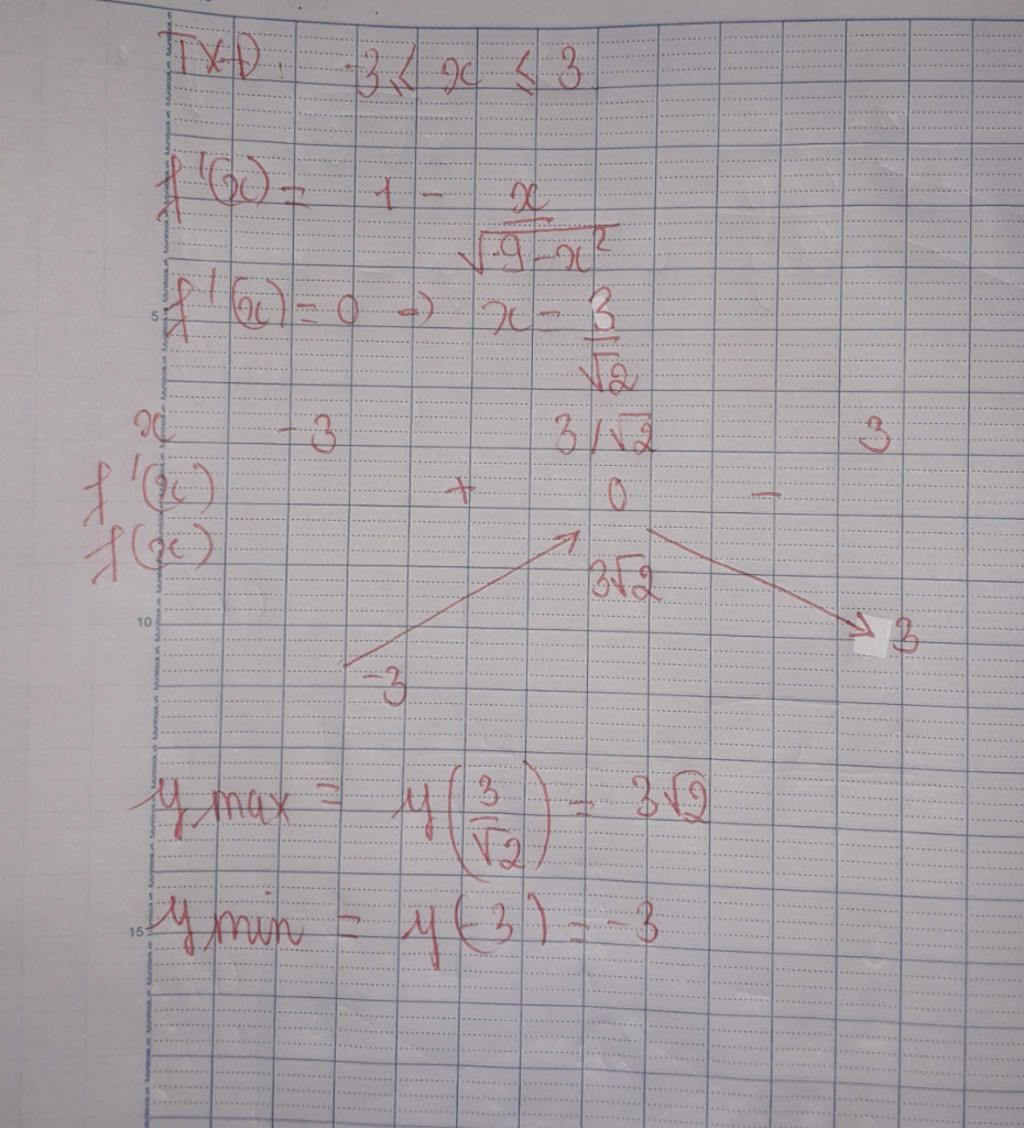 TXĐ. -3 ≤ x ≤ 3
f'(x) = 1 - x/√(9-x²)
5
f'(x) = 0 → x = 3/√2
x -3 3/√2 3
f'(x) + 0 -
f(x)
3√2
10
3
-3
y max = y(3/√2) = 3√2
15
y min = y(-3) = -3